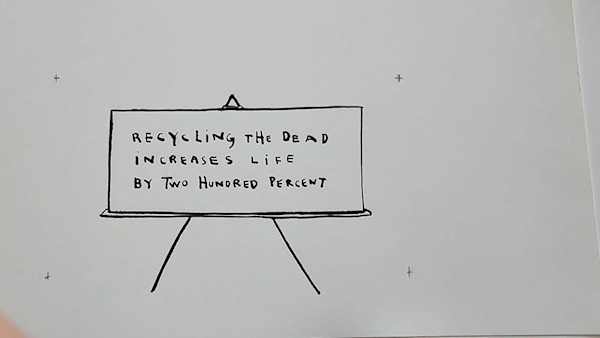 RECYCLING THE DEAD
INCREASES LIFE
BY TWO HUNDRED PERCENT